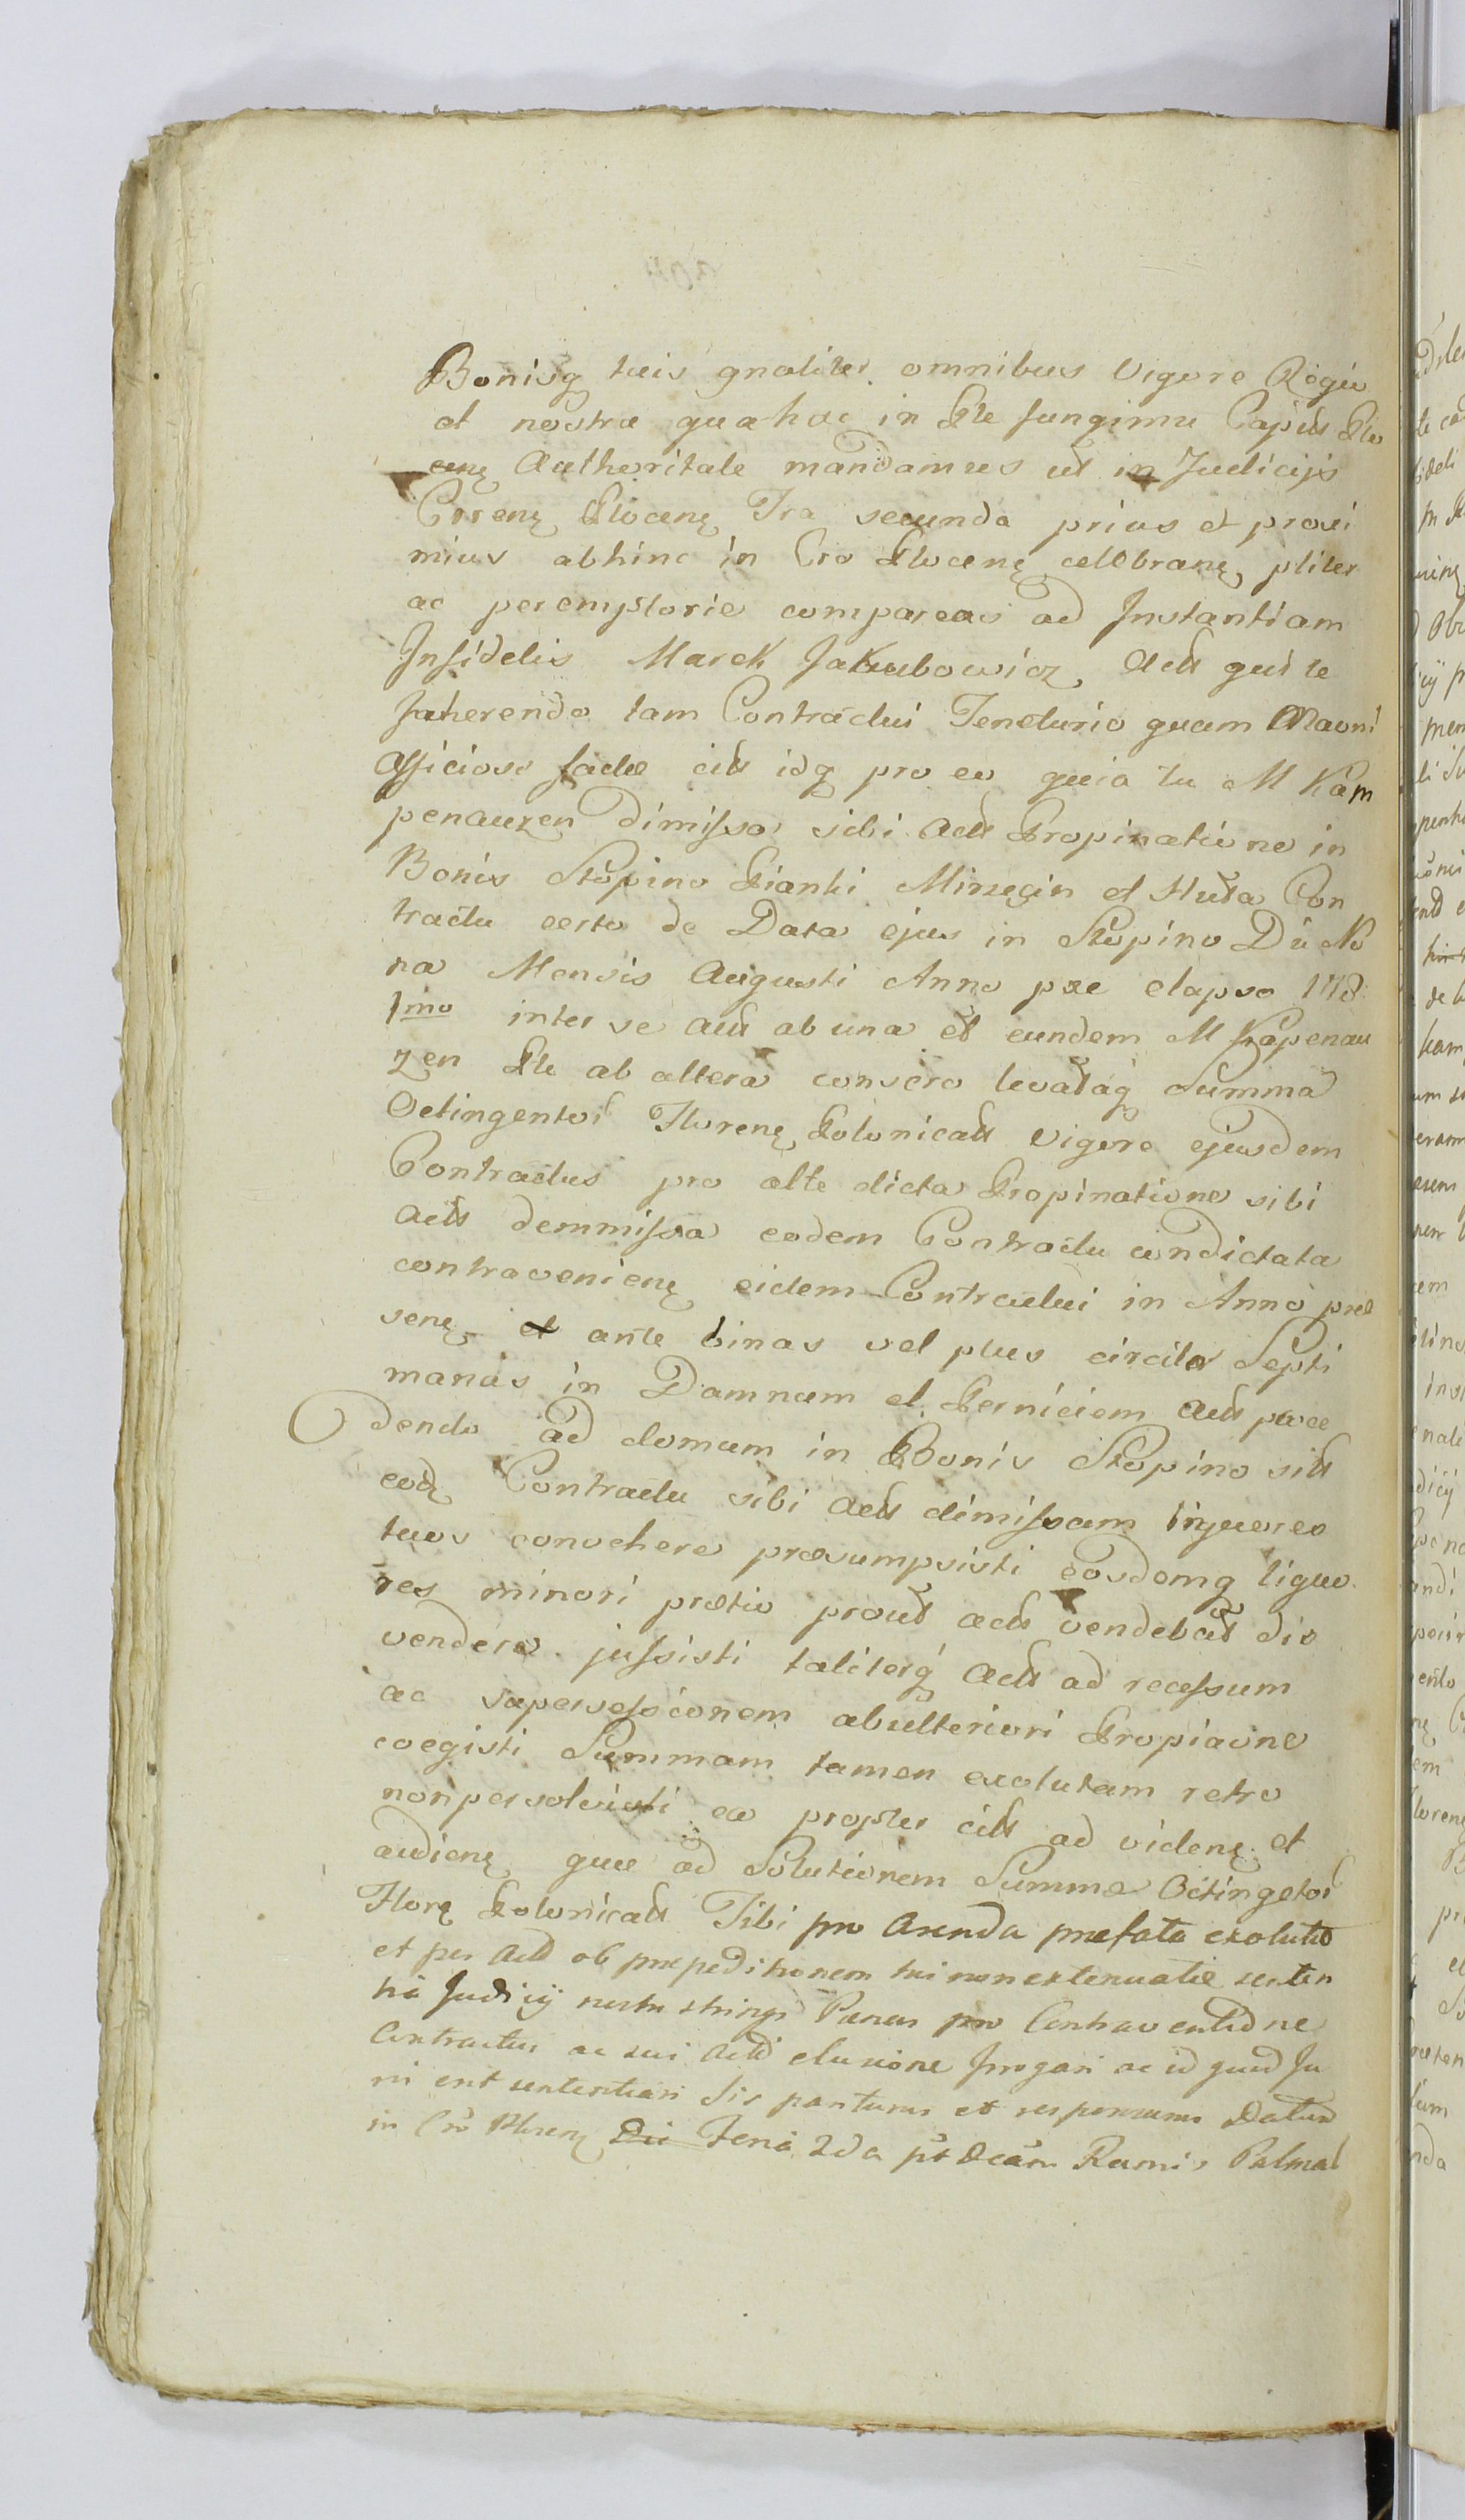 Bonisq tuis gnaliter omnibus Vigore Regia
et nostra qua hac in Pte fungimur Capits Plo
cenę Authoritate mandamus ut in Judicijs
Crrenę Plocenę Fra secunda prius et proxi
mius abhinc in Cro Plocenę celebranę pliter
ac peremptorie compareas ad Instantiam
Infidelis Marek Jakubowicz Acts qui te
Inherendo tam Contractui Teneturio quam
Officiose factæ cits idq pro eo quia tu M Kam
penauzen dimissa sibi Acti Propinatione in
Bonis Stopino Pianki Mirzęcin et Huta Con
tractu certo de Data ejus in Stopino Die No
na Mensis Augusti Anno præ elapso 178
1mo inter se Acti ab una et eundem M Kapenau
zen Pte ab altera consero levataq Summa
Octingentor Florenę Polonicals vigore ejusdem
Contractus pro alte dicta Propinatione sibi
Acti demmissa eodem Contractu condictata
contravenienę eidem Contractui in Anno præ
senę et ante binas vel plus circiter Septi
manas in Damnum et Perniciem Acts præce
dendo ad domum in Bonis Stopino sits
eodę Contractu sibi Acti dimissam liquores
tuos convehere præsumpsisti eosdemq liquo
res minori prætio prout Acts vendebat dis
vendere jussisti taliterq Acts ad recessum
ac supersessionem abulteriori Propiaone
coegisti Summam tamen exolutam retro
nonpersolvisti ea propter cits ad videnę et
audienę quæ ad Solutionem Summæ Octingetor
Florę Polonicals Tibi pro Arenda præfata exolutæ
et per Acts ob præpeditionem tui non extenuatæ senten
tia Judicij nostri stringi Pænas pro Contraventione
Contractus ac sui Acts elusione irrogari ac id quod Ju
ris erit sententiari Sis pariturus et responsurus Datum
in Cro Plocenę Feria 2da pt Dcam Ramis Palmar